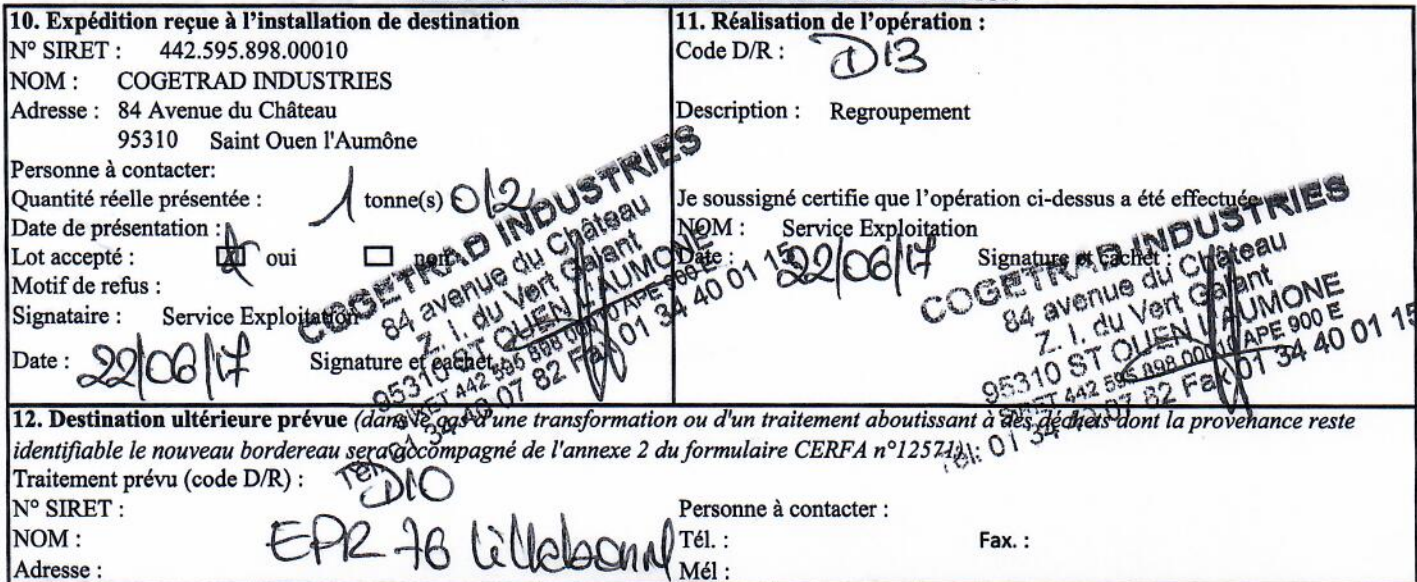 10. Expédition reçue à l'installation de destination
N° SIRET : 442.595.898.00010
NOM : COGETRAD INDUSTRIES
Adresse : 84 Avenue du Château
95310 Saint Ouen l'Aumône
Personne à contacter:
Quantité réelle présentée : 1 tonne(s) 012
Date de présentation :
Lot accepté : oui non
Motif de refus :
Signataire : Service Exploitation
Date : 22/06/17 Signature et cachet
COGETRAD INDUSTRIES
84 avenue du Château
Z. I. du Vert Galant
95310 ST OUEN L'AUMONE
SIRET 442 595 898 00010 APE 900 E
Tél: 01 34 40 07 82 Fax 01 34 40 01 15
11. Réalisation de l'opération :
Code D/R : D13
Description : Regroupement
Je soussigné certifie que l'opération ci-dessus a été effectuée
NOM : Service Exploitation
Date : 22/06/17 Signature et cachet :
COGETRAD INDUSTRIES
84 avenue du Château
Z. I. du Vert Galant
95310 ST OUEN L'AUMONE
SIRET 442 595 898 00010 APE 900 E
Tél: 01 34 40 07 82 Fax 01 34 40 01 15
12. Destination ultérieure prévue (dans le cas d'une transformation ou d'un traitement aboutissant à des déchets dont la provenance reste
identifiable le nouveau bordereau sera accompagné de l'annexe 2 du formulaire CERFA n°12571)
Traitement prévu (code D/R) : D10
N° SIRET :
NOM : EPR 76 Lillebonne
Adresse :
Personne à contacter :
Tél. : Fax. :
Mél :